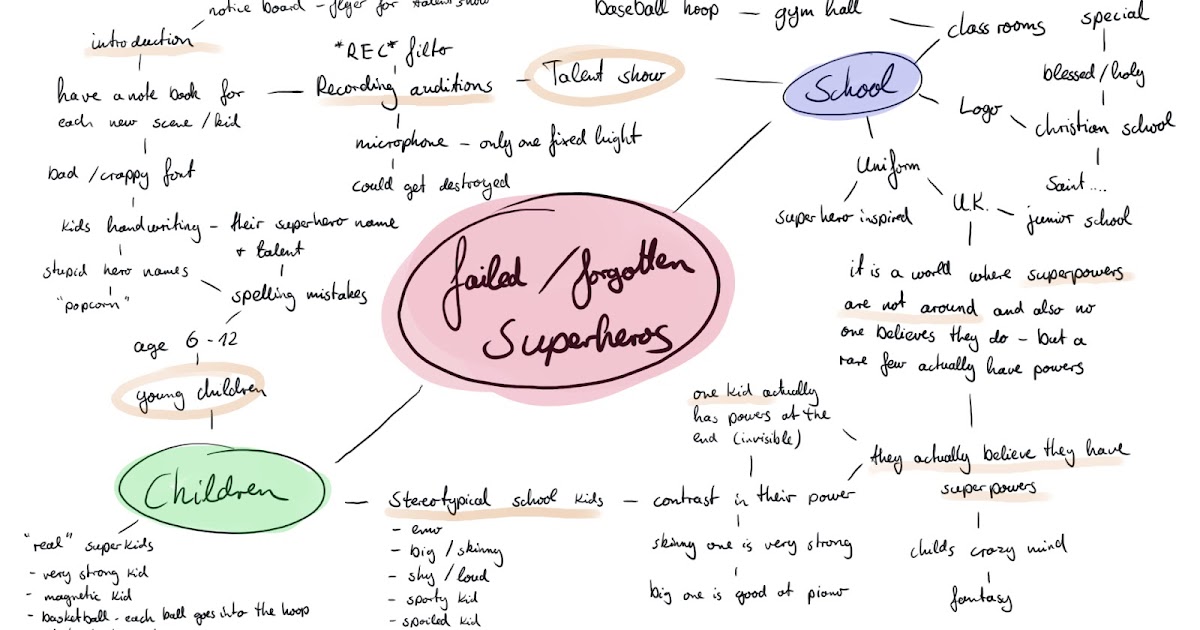 notice board - flyer for talent show
introduction
have a note book for
each new scene / kid
bad / crappy font
kids handwriting - their superhero name
+ talent
stupid hero names
"popcorn"
spelling mistakes
age 6 - 12
young children
Children
"real" superkids
- very strong kid
- magnetic kid
- basketball - each ball goes into the hoop
*REC* filto
Recording auditions
Talent show
microphone - only one fixed hight
could get destroyed
failed / forgotten
Superheros
baseball hoop - gym hall
class rooms
School
Logo
special
blessed / holy
christian school
Saint ....
Uniform
superhero inspired
U.K. - junior school
it is a world where superpowers
are not around and also no
one believes they do - but a
rare few actually have powers
they actually believe they have
superpowers
childs crazy mind
fantasy
one kid actually
has powers at the
end (invisible)
Stereotypical school kids - contrast in their power
- emo
- big / skinny
- shy / loud
- sporty kid
- spoiled kid
skinny one is very strong
big one is good at piano